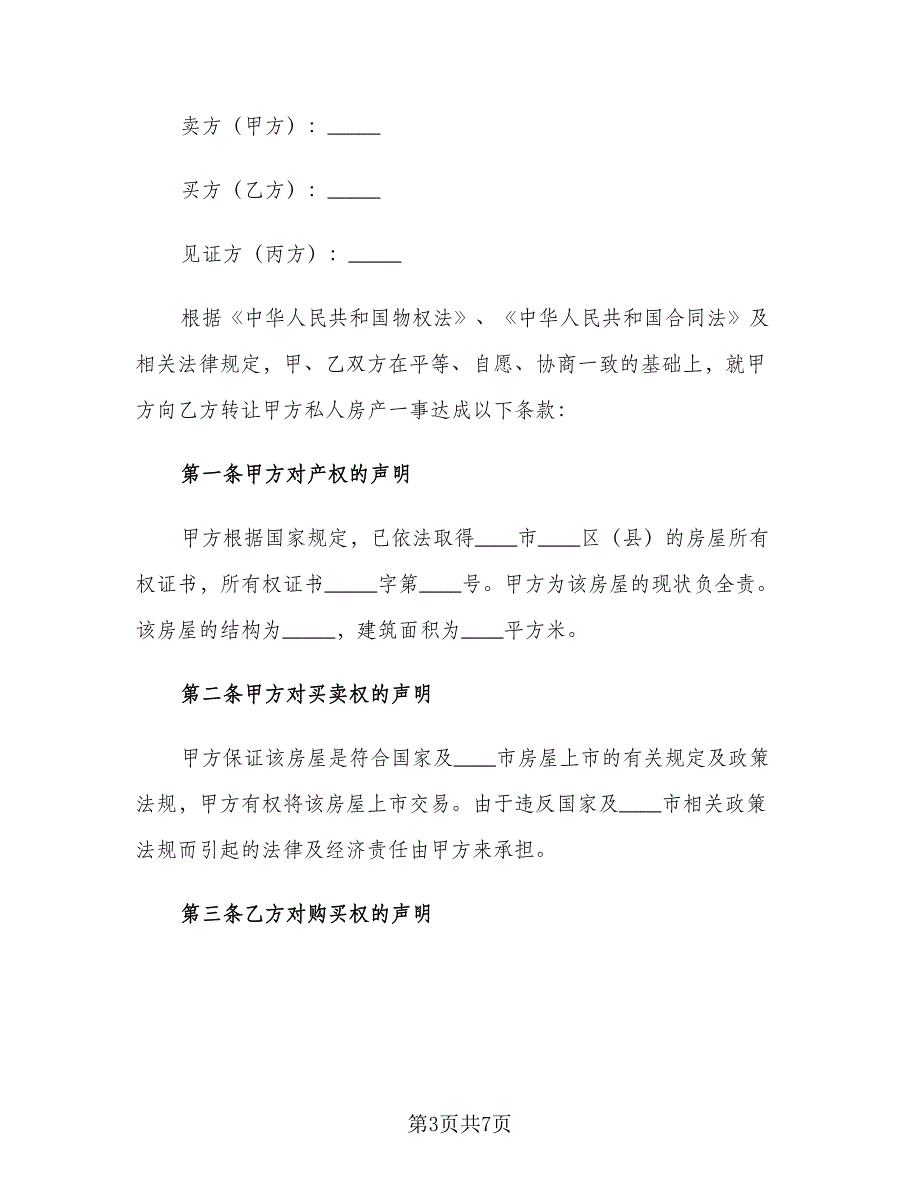 卖方（甲方）：_____
买方（乙方）：_____
见证方（丙方）：_____
根据《中华人民共和国物权法》、《中华人民共和国合同法》及
相关法律规定，甲、乙双方在平等、自愿、协商一致的基础上，就甲
方向乙方转让甲方私人房产一事达成以下条款：
第一条甲方对产权的声明
甲方根据国家规定，已依法取得____市____区（县）的房屋所有
权证书，所有权证书_____字第____号。甲方为该房屋的现状负全责。
该房屋的结构为_____，建筑面积为____平方米。
第二条甲方对买卖权的声明
甲方保证该房屋是符合国家及____市房屋上市的有关规定及政策
法规，甲方有权将该房屋上市交易。由于违反国家及____市相关政策
法规而引起的法律及经济责任由甲方来承担。
第三条乙方对购买权的声明
第3页共7页